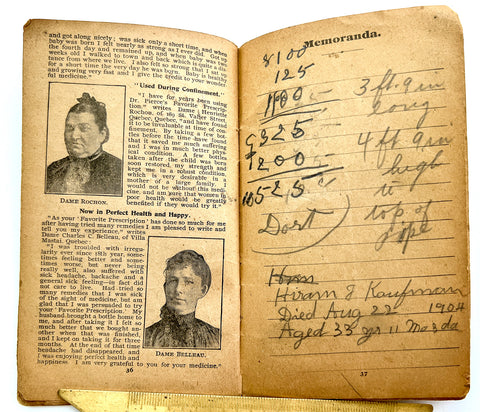 and got along nicely; was sick only a short time, and when
baby was born I felt nearly as strong as I ever did. Got up
the fourth day and remained up, and when baby was two
weeks old I walked to town and back which is quite a dis-
tance from where we live. I also feel so strong that I sat up
and growing very fast and I give the credit to your wonder-
ful medicine."
"Used During Confinement.
"I have for years been using
Dr. Pierce's Favorite Prescrip-
tion," writes Dame J Henriette
Rochon, of 165 St. Valier Street,
Quebec, Quebec, "and have found
it to be invaluable at time of con-
finement. By taking a few bot-
tles before the time I have found
that it saved me much suffering
and I was in much better phys-
ical condition. A few bottles
taken after the child was born
soon restored my strength and
kept me in a robust condition,
which is very desirable in a
mother of a large family. I
would not be without this medi-
cine, and am sure that women in
poor health would be greatly
benefited if they would try it."
DAME ROCHON.
Now in Perfect Health and Happy.
"As your 'Favorite Prescription' has done so much for me
after having tried many remedies I am pleased to write and
tell you my experience," writes
Dame Charles C. Belleau, of Villa
Mastai, Quebec:
"I was troubled with irregular-
ity ever since 18th year, some-
times feeling better and some-
times worse, but never being
really well, also suffered with
sick headache, backache and a
general sick feeling—in fact did
not care to live. Had tried so
many remedies that I was sick
of the sight of medicine, but am
glad that I was persuaded to try
your 'Favorite Prescription.' My
husband brought a bottle home to
me, and after taking it I felt so
much better that he bought an-
other when that was finished,
and I kept on taking it for three
months. At the end of that time
headache had disappeared, and
I was enjoying perfect health and
happiness. I am very grateful to you for your medicine."
DAME BELLEAU.
36
Memoranda.
8100
125
1100
9325
1200
10525
3 ft. 9 in
long
1 ft 9 in
high
to
top of
Dart
Hiram J Kaufmann
Died Aug 22 1904
Aged 33 yr 11 Mo
37